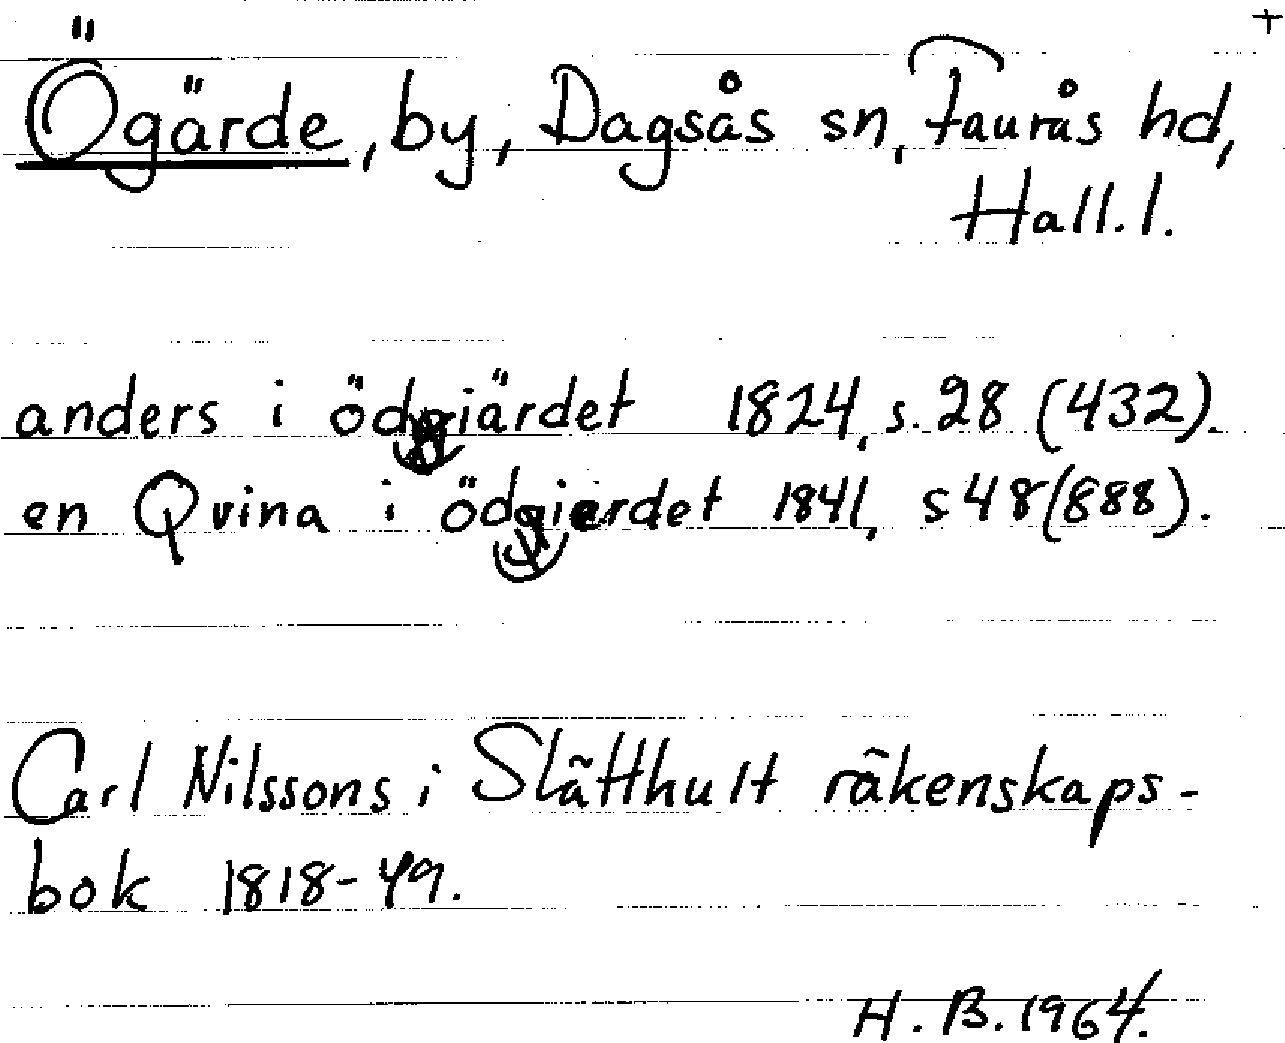 +
Ögärde, by, Dagsås sn, Faurås hd,
Hall. l.
anders i ödgiärdet 1824, s. 28 (432).
en Qvina i ödgierdet 1841, s 48 (888).
Carl Nilssons i Slätthult räkenskaps-
bok 1818-49.
H. B. 1964.